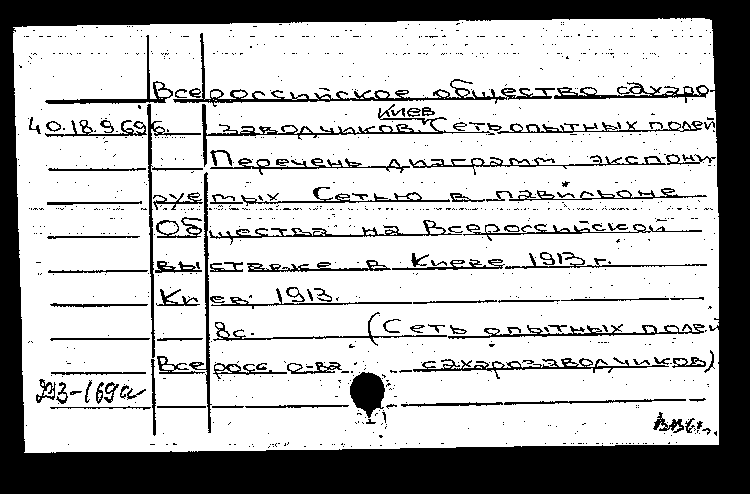 Всероссийское общество сахаро-
Киев
40.18.9.69б. заводчиков. Сеть опытных полей
Перечень диаграмм, экспони-
руемых Сетью в павильоне
Общества на Всероссийской
выставке в Киеве 1913 г.
Киев, 1913.
8с. (Сеть опытных полей
Всеросс. о-ва сахарозаводчиков)
293-169а